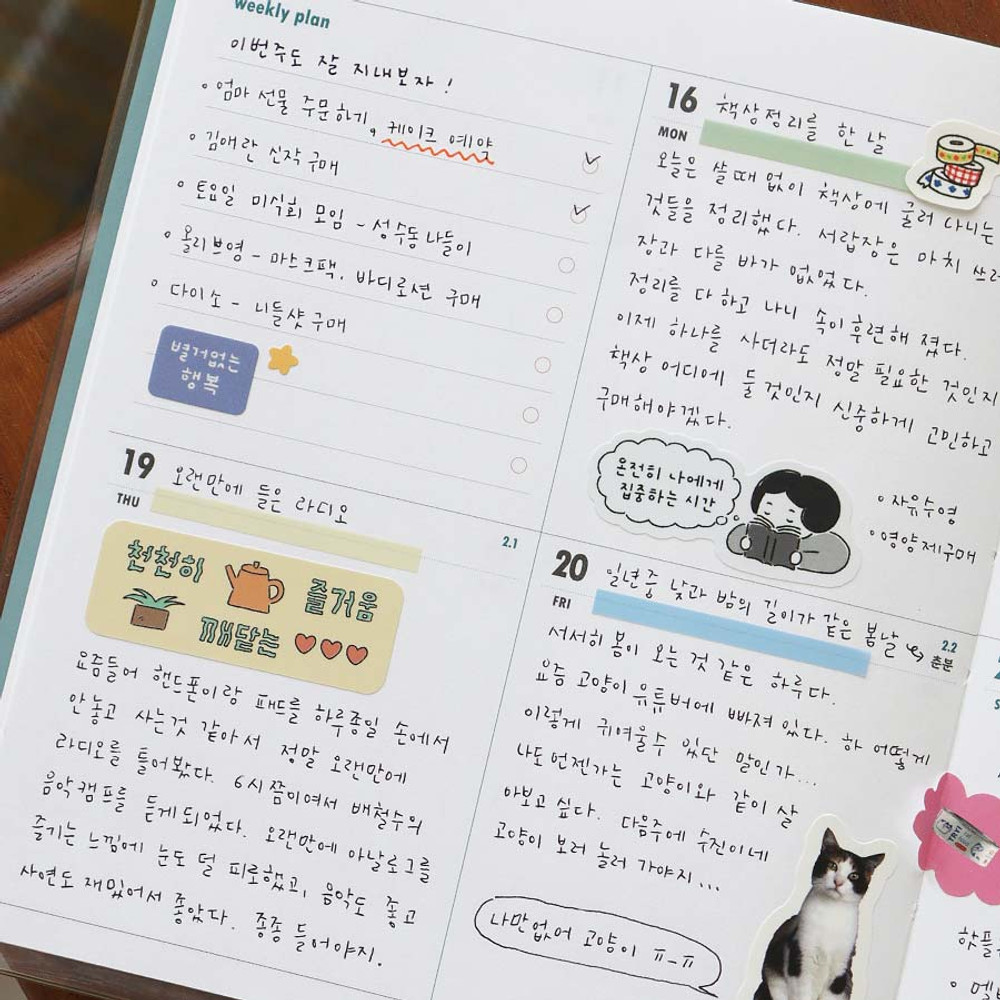 weekly plan
이번주도 잘 지내보자 !
엄마 선물 주문하기, 케이크 예약
김애란 신작 구매
토요일 미식회 모임 - 성수동 나들이
올리브영 - 마스크팩, 바디로션 구매
다이소 - 니들샷 구매
별거없는
행복
16
MON
책상정리를 한 날
오늘은 쓸 때 없이 책상에 굴러 다니는
것들을 정리했다. 서랍장은 마치 쓰레
장과 다를 바가 없었다.
정리를 다 하고 나니 속이 후련해 졌다.
이제 하나를 사더라도 정말 필요한 것인지
책상 어디에 둘 것인지 신중하게 고민하고
구매해야겠다.
온전히 나에게
집중하는 시간
자유수영
영양제구매
19
THU
오랜만에 들은 라디오
2.1
천천히 즐거움
깨닫는
요즘들어 핸드폰이랑 패드를 하루종일 손에서
안놓고 사는것 같아서 정말 오랜만에
라디오를 틀어봤다. 6시쯤이여서 배철수의
음악캠프를 듣게되었다. 오랜만에 아날로그를
즐기는 느낌에 눈도 덜 피로했고, 음악도 좋고
사연도 재밌어서 좋았다. 종종 들어야지.
20
FRI
일년중 낮과 밤의 길이가 같은 봄날
2.2
춘분
서서히 봄이 오는 것 같은 하루다.
요즘 고양이 유튜버에 빠져 있다. 하 어떻게
이렇게 귀여울수 있단 말인가...
나도 언젠가는 고양이와 같이 살
아보고 싶다. 다음주에 수진이네
고양이 보러 놀러 가야지...
나만없어 고양이 ㅠ_ㅠ